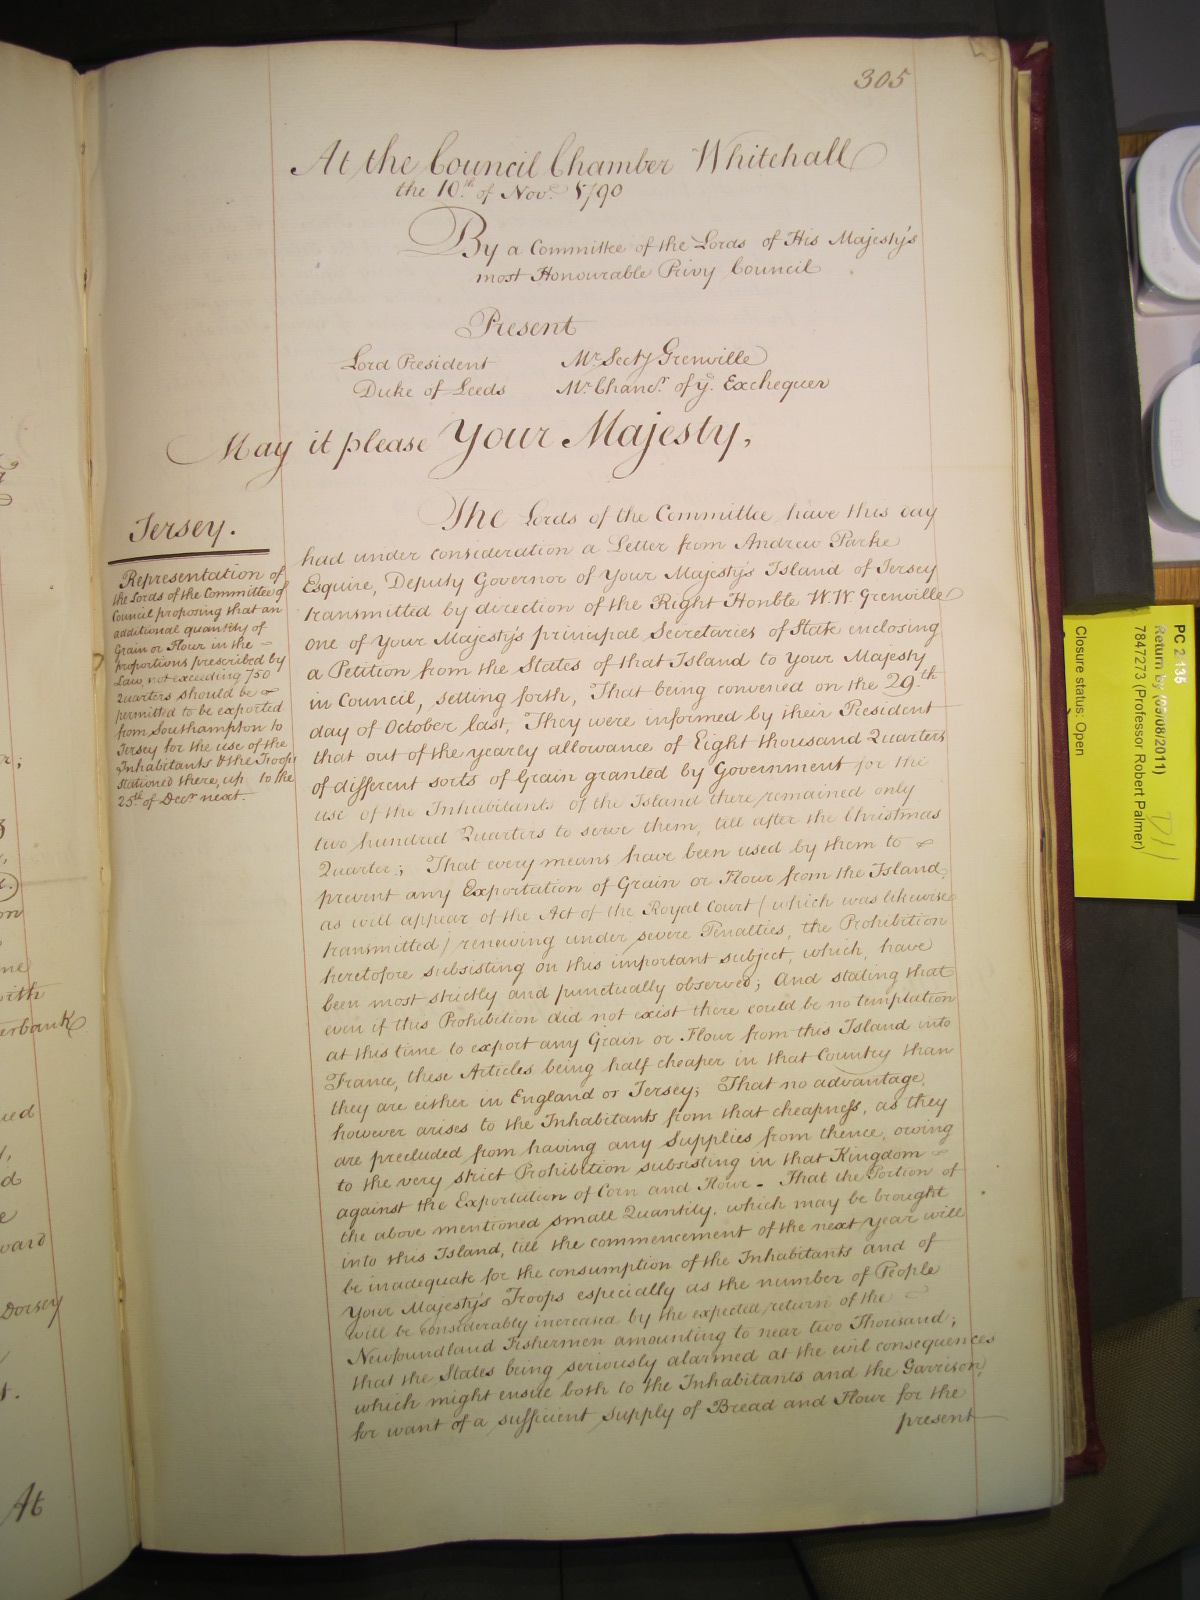 305
At the Council Chamber Whitehall
the 10.th of Nov.r 1790
By a Committee of the Lords of His Majesty's
most Honourable Privy Council
Present
Lord President Mr. Secty Grenville
Duke of Leeds Mr. Chanc.r of y.e Exchequer
May it please Your Majesty,
Jersey.
Representation of
the Lords of the Committee of
Council proposing that an
additional quantity of
Grain or Flour in the
proportions prescribed by
Law, not exceeding 750
Quarters should be
permitted to be exported
from Southampton to
Jersey for the use of the
Inhabitants & the Troops
stationed there, up to the
25th of Decr next.
The Lords of the Committee have this day
had under consideration a Letter from Andrew Parke
Esquire, Deputy Governor of Your Majesty's Island of Jersey
transmitted by direction of the Right Honble W. W. Grenville
one of Your Majesty's principal Secretaries of State enclosing
a Petition from the States of that Island to Your Majesty
in Council, setting forth, That being convened on the 29.th
day of October last, They were informed by their President
that out of the yearly allowance of Eight thousand Quarters
of different sorts of Grain granted by Government for the
use of the Inhabitants of the Island there remained only
two hundred Quarters to serve them, till after the Christmas
Quarter; That every means have been used by them to
prevent any Exportation of Grain or Flour from the Island,
as will appear of the Act of the Royal Court (which was likewise
transmitted) renewing under severe Penalties, the Prohibition
heretofore subsisting on this important subject, which, have
been most strictly and punctually observed; And stating that
even if this Prohibition did not exist there could be no temptation
at this time to export any Grain or Flour from this Island into
France, these Articles being half cheaper in that Country than
they are either in England or Jersey; That no advantage
however arises to the Inhabitants from that cheapness, as they
are precluded from having any Supplies from thence, owing
to the very strict Prohibition subsisting in that Kingdom
against the Exportation of Corn and Flour - That the Portion of
the above mentioned small Quantity, which may be brought
into this Island, till the commencement of the next year will
be inadequate for the consumption of the Inhabitants and of
Your Majesty's Troops especially as the number of People
will be considerably increased by the expected return of the
Newfoundland Fishermen amounting to near two Thousand;
that the States being seriously alarmed at the evil consequences
which might ensue both to the Inhabitants and the Garrison,
for want of a sufficient supply of Bread and Flour for the
present
erbank
Dorsey
At
PC 2 135
Return by (05/08/2011)
7847273 (Professor Robert Palmer)
Closure status: Open